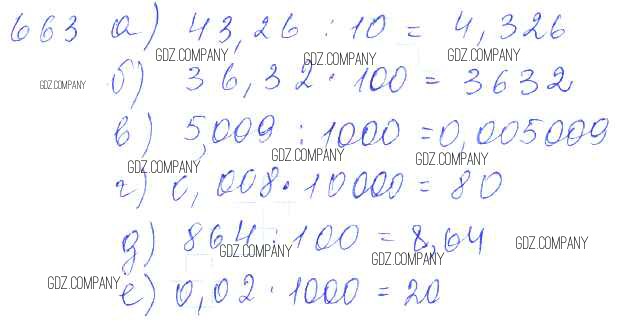 663 а) 43,26 : 10 = 4,326
GDZ.COMPANY GDZ.COMPANY GDZ.COMPANY
GDZ.COMPANY б) 36,32 · 100 = 3632
в) 5,009 : 1000 = 0,005009
GDZ.COMPANY GDZ.COMPANY GDZ.COMPANY
г) 0,008 · 10000 = 80
д) 864 : 100 = 8,64
GDZ.COMPANY GDZ.COMPANY GDZ.COMPANY
GDZ.COMPANY е) 0,02 · 1000 = 20